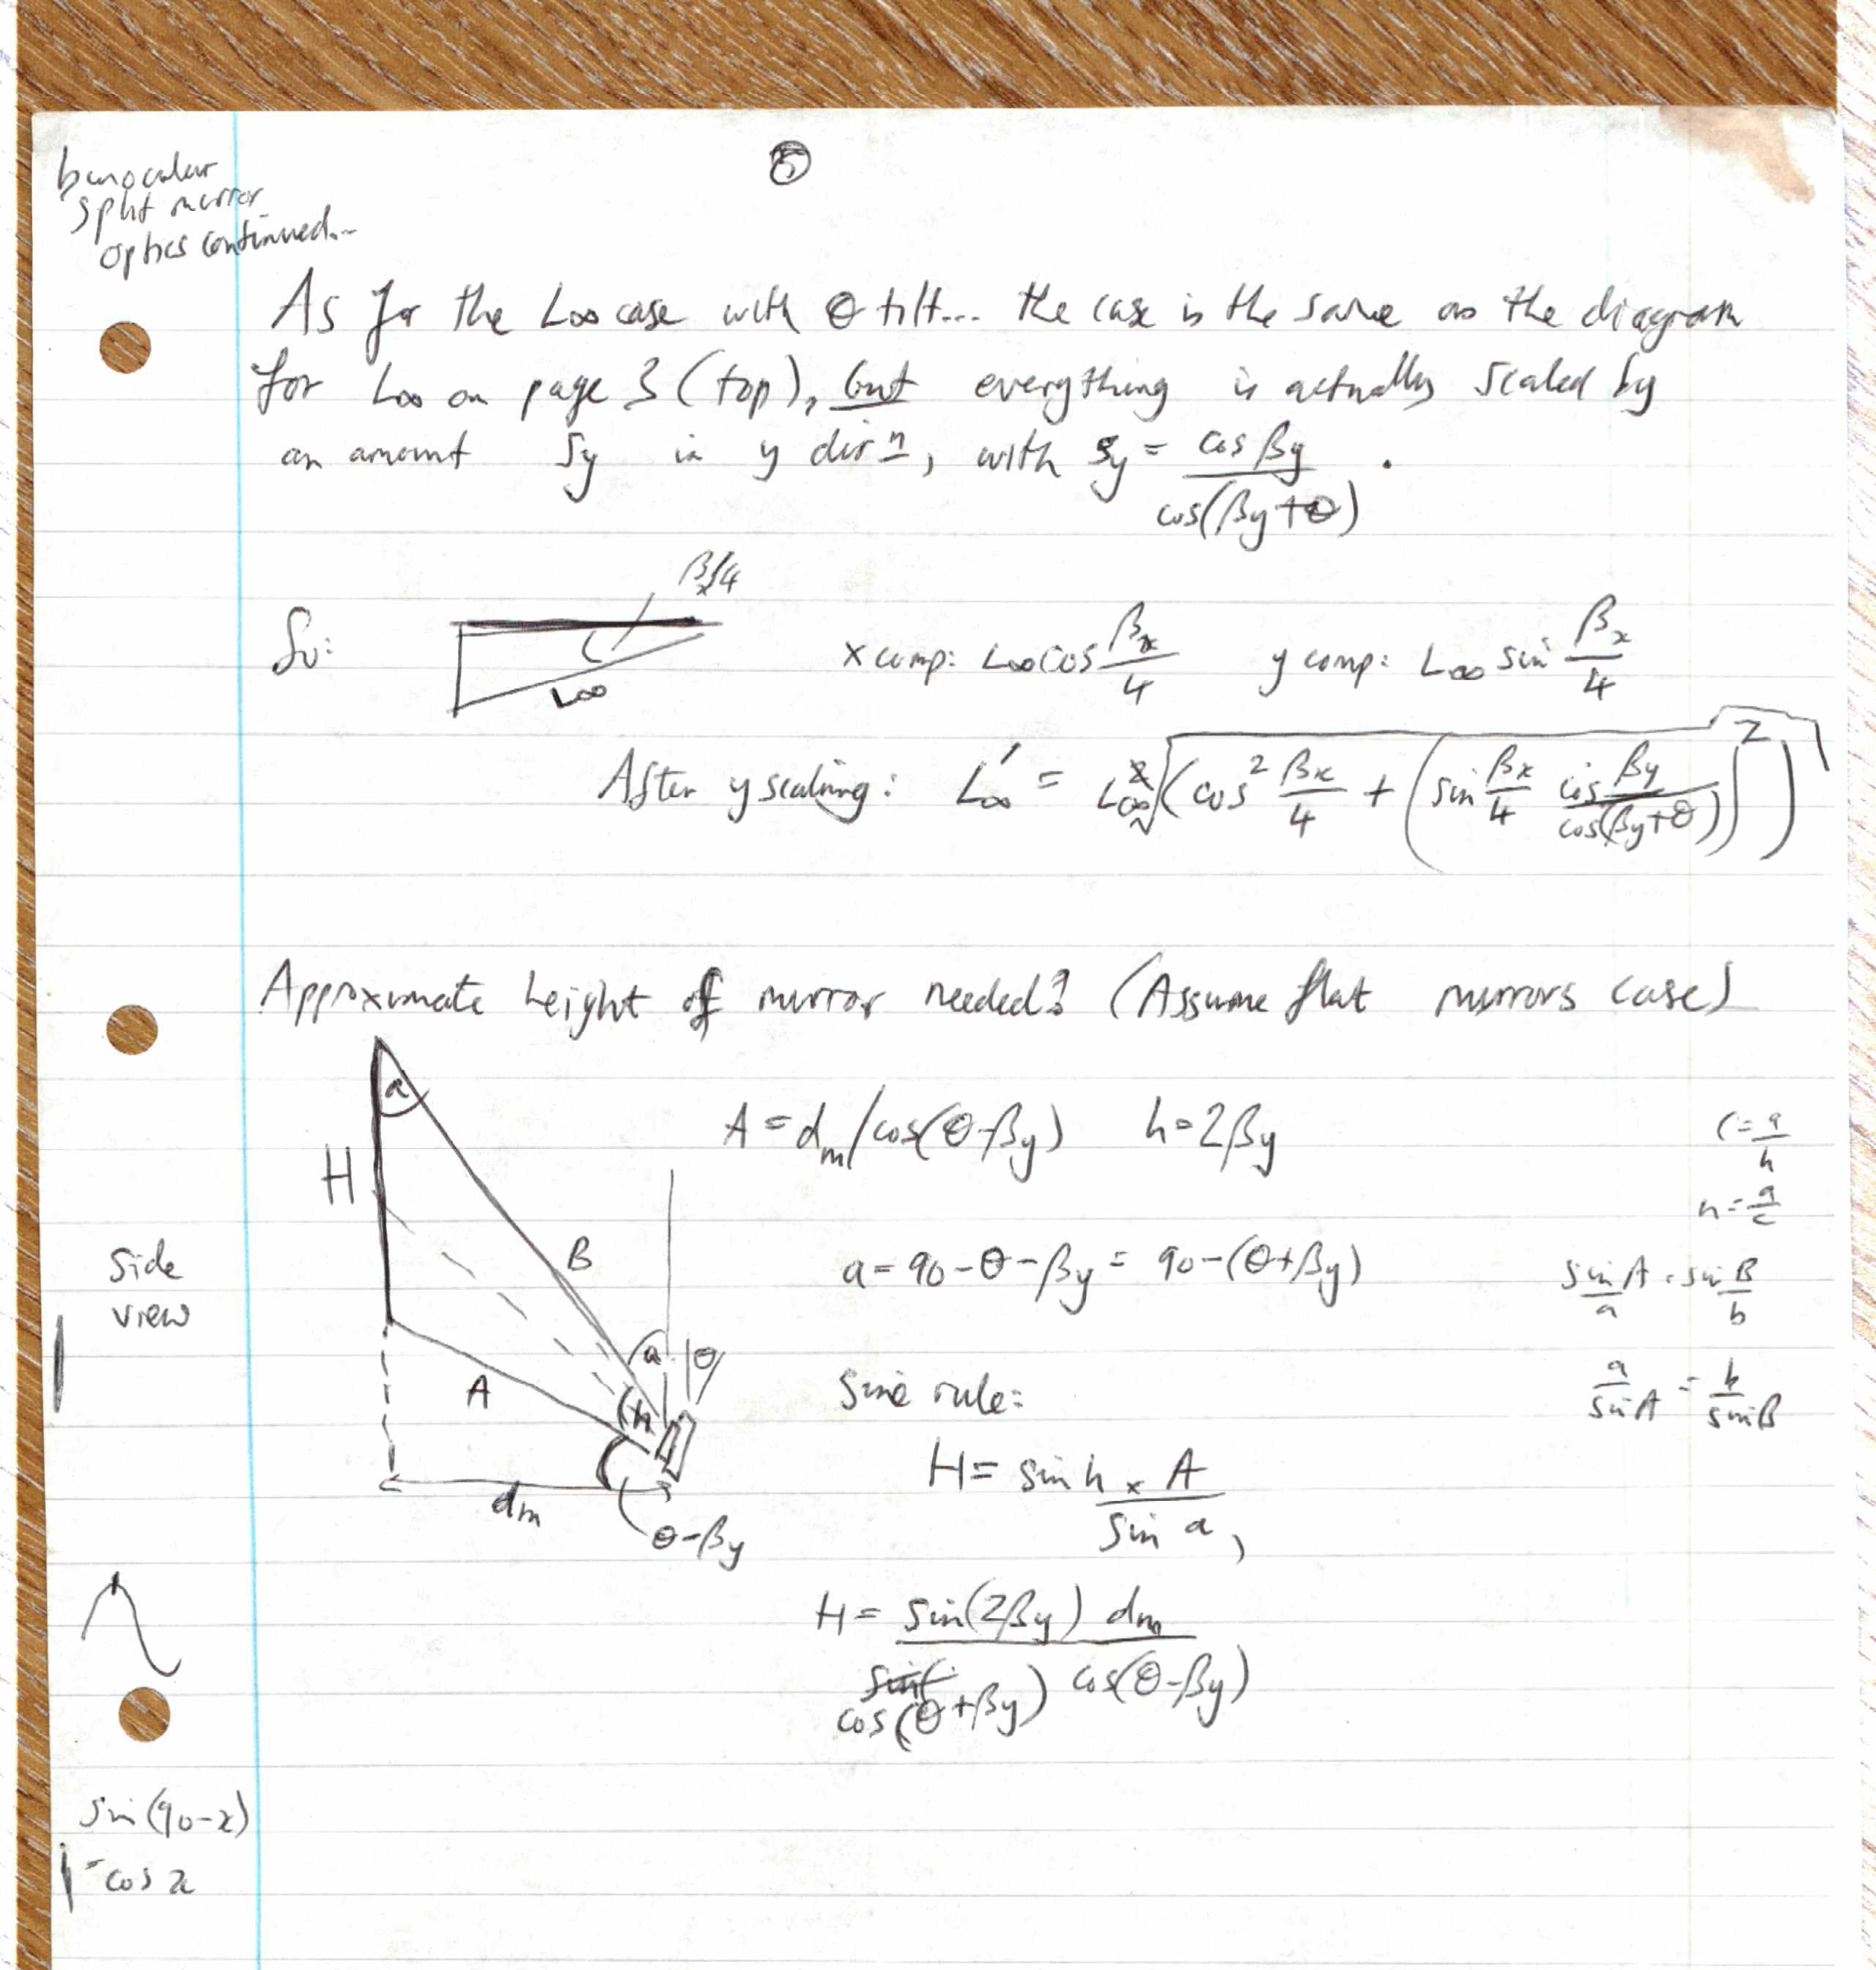 5
binocular
split mirror
optics continued...
As for the L∞ case with θ tilt... the case is the same as the diagram
for L∞ on page 3 (top), but everything is actually scaled by
an amount Sy in y dirn, with Sy = cos βy / cos(βy+θ) .
So:
βx/4
L∞
x comp: L∞ cos βx/4   y comp: L∞ sin βx/4
After y scaling: L∞' = L∞ √(cos² βx/4 + (sin βx/4 cos βy / cos(βy+θ))²)
Approximate height of mirror needed? (Assume flat mirrors case)
side
view
a
H
B
A
a
θ
h
dm
θ-βy
A = dm/cos(θ-βy)   h=2βy
c=a/h
h=a/c
a = 90-θ-βy = 90-(θ+βy)
sin A/a = sin B/b
a/sin A = b/sin B
Sine rule:
H = sin h × A / sin a,
H = sin(2βy) dm / cos(θ+βy) cos(θ-βy)
sin(90-x)
= cos x